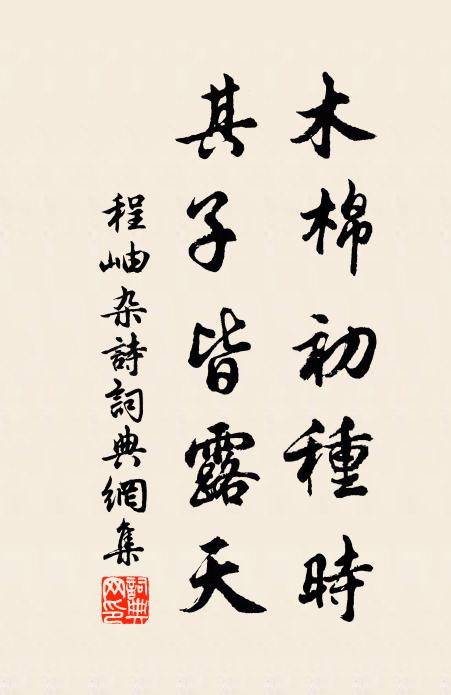 木棉初種時
其子皆露天
程岫杂詩詞典網集
詞典网印